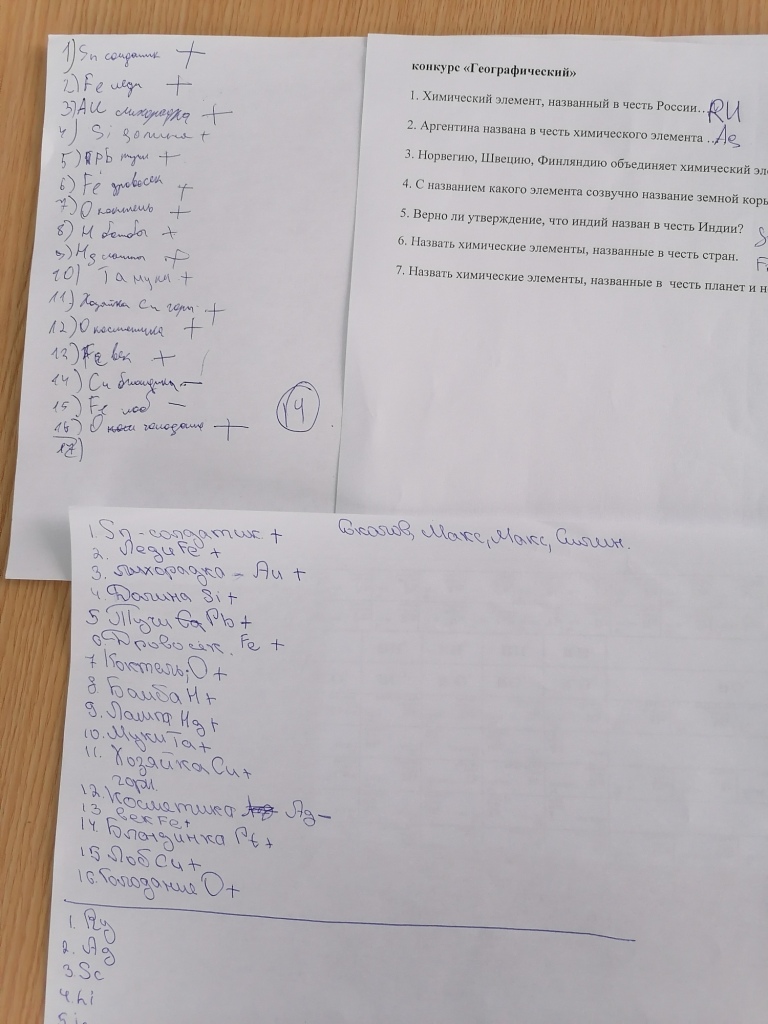 1) Sn солдатик +
2) Fe леди +
3) Au лихорадка +
4) Si долина +
5) Pb тучи +
6) Fe дровосек +
7) O коктейль +
8) H бомба +
9) Hg лампы +
10) Ta муки +
11) Хозяйка Cu горы +
12) O косметика +
13) Fe век +
14) Cu блондинка –
15) Fe лоб –
16) O голодание +
17)
14
конкурс «Географический»
1. Химический элемент, названный в честь России... RU
2. Аргентина названа в честь химического элемента .. Ag
3. Норвегию, Швецию, Финляндию объединяет химический эл
4. С названием какого элемента созвучно название земной коры
5. Верно ли утверждение, что индий назван в честь Индии?
6. Назвать химические элементы, названные в честь стран.
7. Назвать химические элементы, названные в честь планет и н
Макс, Макс,
1. Sn-солдатик +
2. Леди Fe +
3. лихорадка – Au +
4. Долина Si +
5 Тучи Pb +
6. Дровосек. Fe +
7 Коктель; O +
8. Бамба H +
9. Лампа Hg +
10. Муки Ta +
11. Хозяйка Cu +
горы.
12. Косметика Ag –
13 век Fe +
14. Блондинка Pt +
15 Лоб Cu +
16. Голодание O +
1. Ry
2. Ag
3. Sc
4. Li